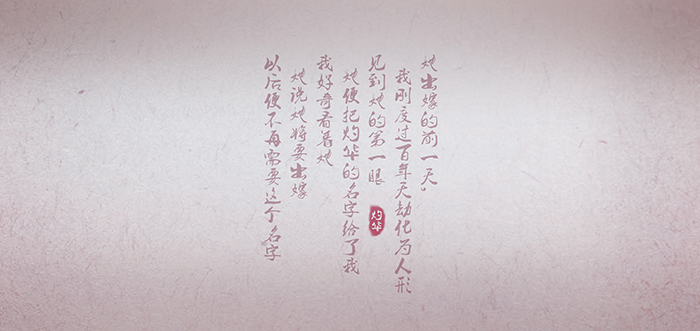 她出嫁的前一天，
我刚度过百年天劫化为人形
见到她的第一眼
她便把灼华的名字给了我
我好奇看着她
她说她将要出嫁
以后便不再需要这个名字
灼华